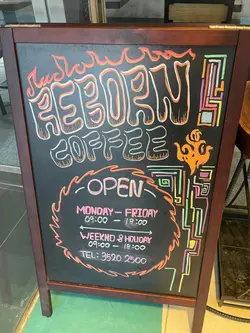 REBORN
COFFEE
OPEN
MONDAY - FRIDAY
09:00 - 18:00
WEEKND & HOLIDAY
09:00 - 18:00
TEL: 3520 2500